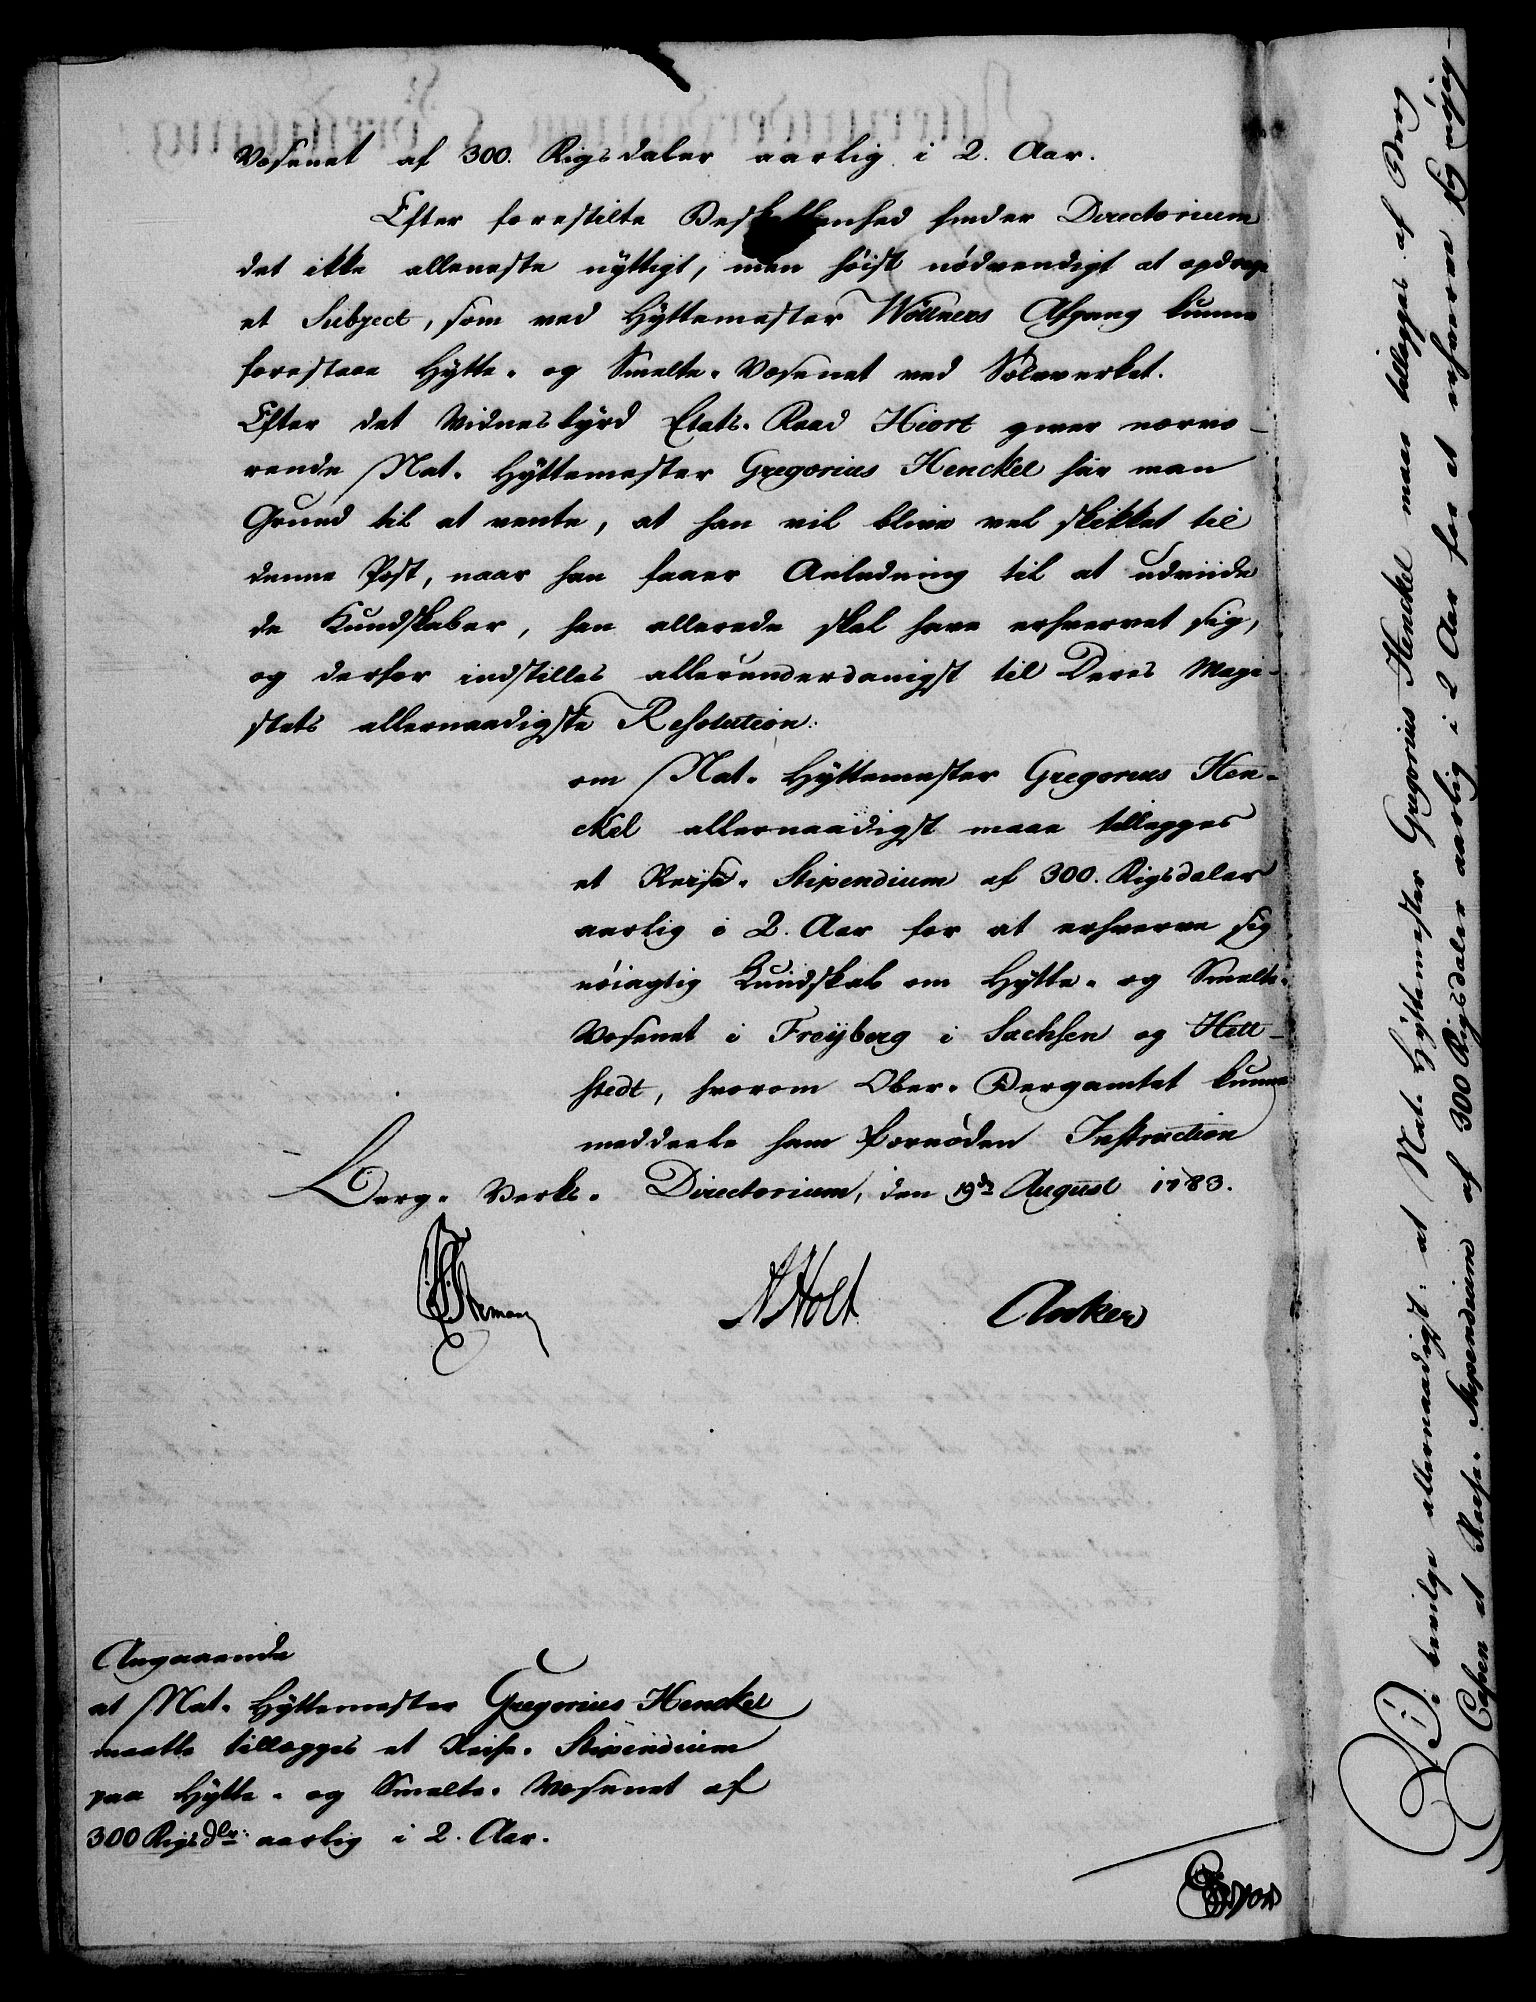 Væsenet af 300. Rigsdaler aarlig i 2. Aar.
Efter forestilte Beskaffenhed finder Directorium
det ikke alleneste nÿttigt, men höist nödvendigt at opdrage
et Subject, som ved Hÿttemester Wöllners Afgang kunne
forestaae Hÿtte- og Smelte-Væsenet ved Sölvverket.
Efter det Vidnesbÿrd Etats-Raad Hiort giver nærvæ-
rende Nat. Hÿttemester Gregorius Henckel har man
Grund til at vente, at han vil blive vel skikket til
denne Post, naar han faaer Anledning til at udviide
de Kundskaber, han allerede skal have erhvervet sig,
og derfor indstilles allerunderdanigst til Deres Maje-
stæts allernaadigste Resolution:
om Nat. Hÿttemester Gregorius Hen-
ckel allernaadigst maae tillægges
et Reise-Stipendium af 300. Rigsdaler
aarlig i 2. Aar for at erhverve sig
nöiagtig Kundskab om Hÿtte- og Smelte-
Væsenet i Freÿberg i Sachsen og Hett-
stedt, hvorom Ober-Bergamtet kunne
meddeele ham fornöden Instruction
Berg-Verks-Directorium, den 19de August 1783.
NHolt Anker
Angaaende
at Nat. Hÿttemester Gregorius Henckel
maatte tillægges et Reise-Stipendium
paa Hÿtte- og Smelte-Væsenet af
300 Rigsdlr: aarlig i 2. Aar.
Vi bevilge allernaadigst: at Nat. Hÿttemester Gregorius Henckel maae tillægges af Berg
Cassen et Reise-Stipendium af 300 Rigsdaler aarlig i 2 Aar for at erhverve sig nöjag-